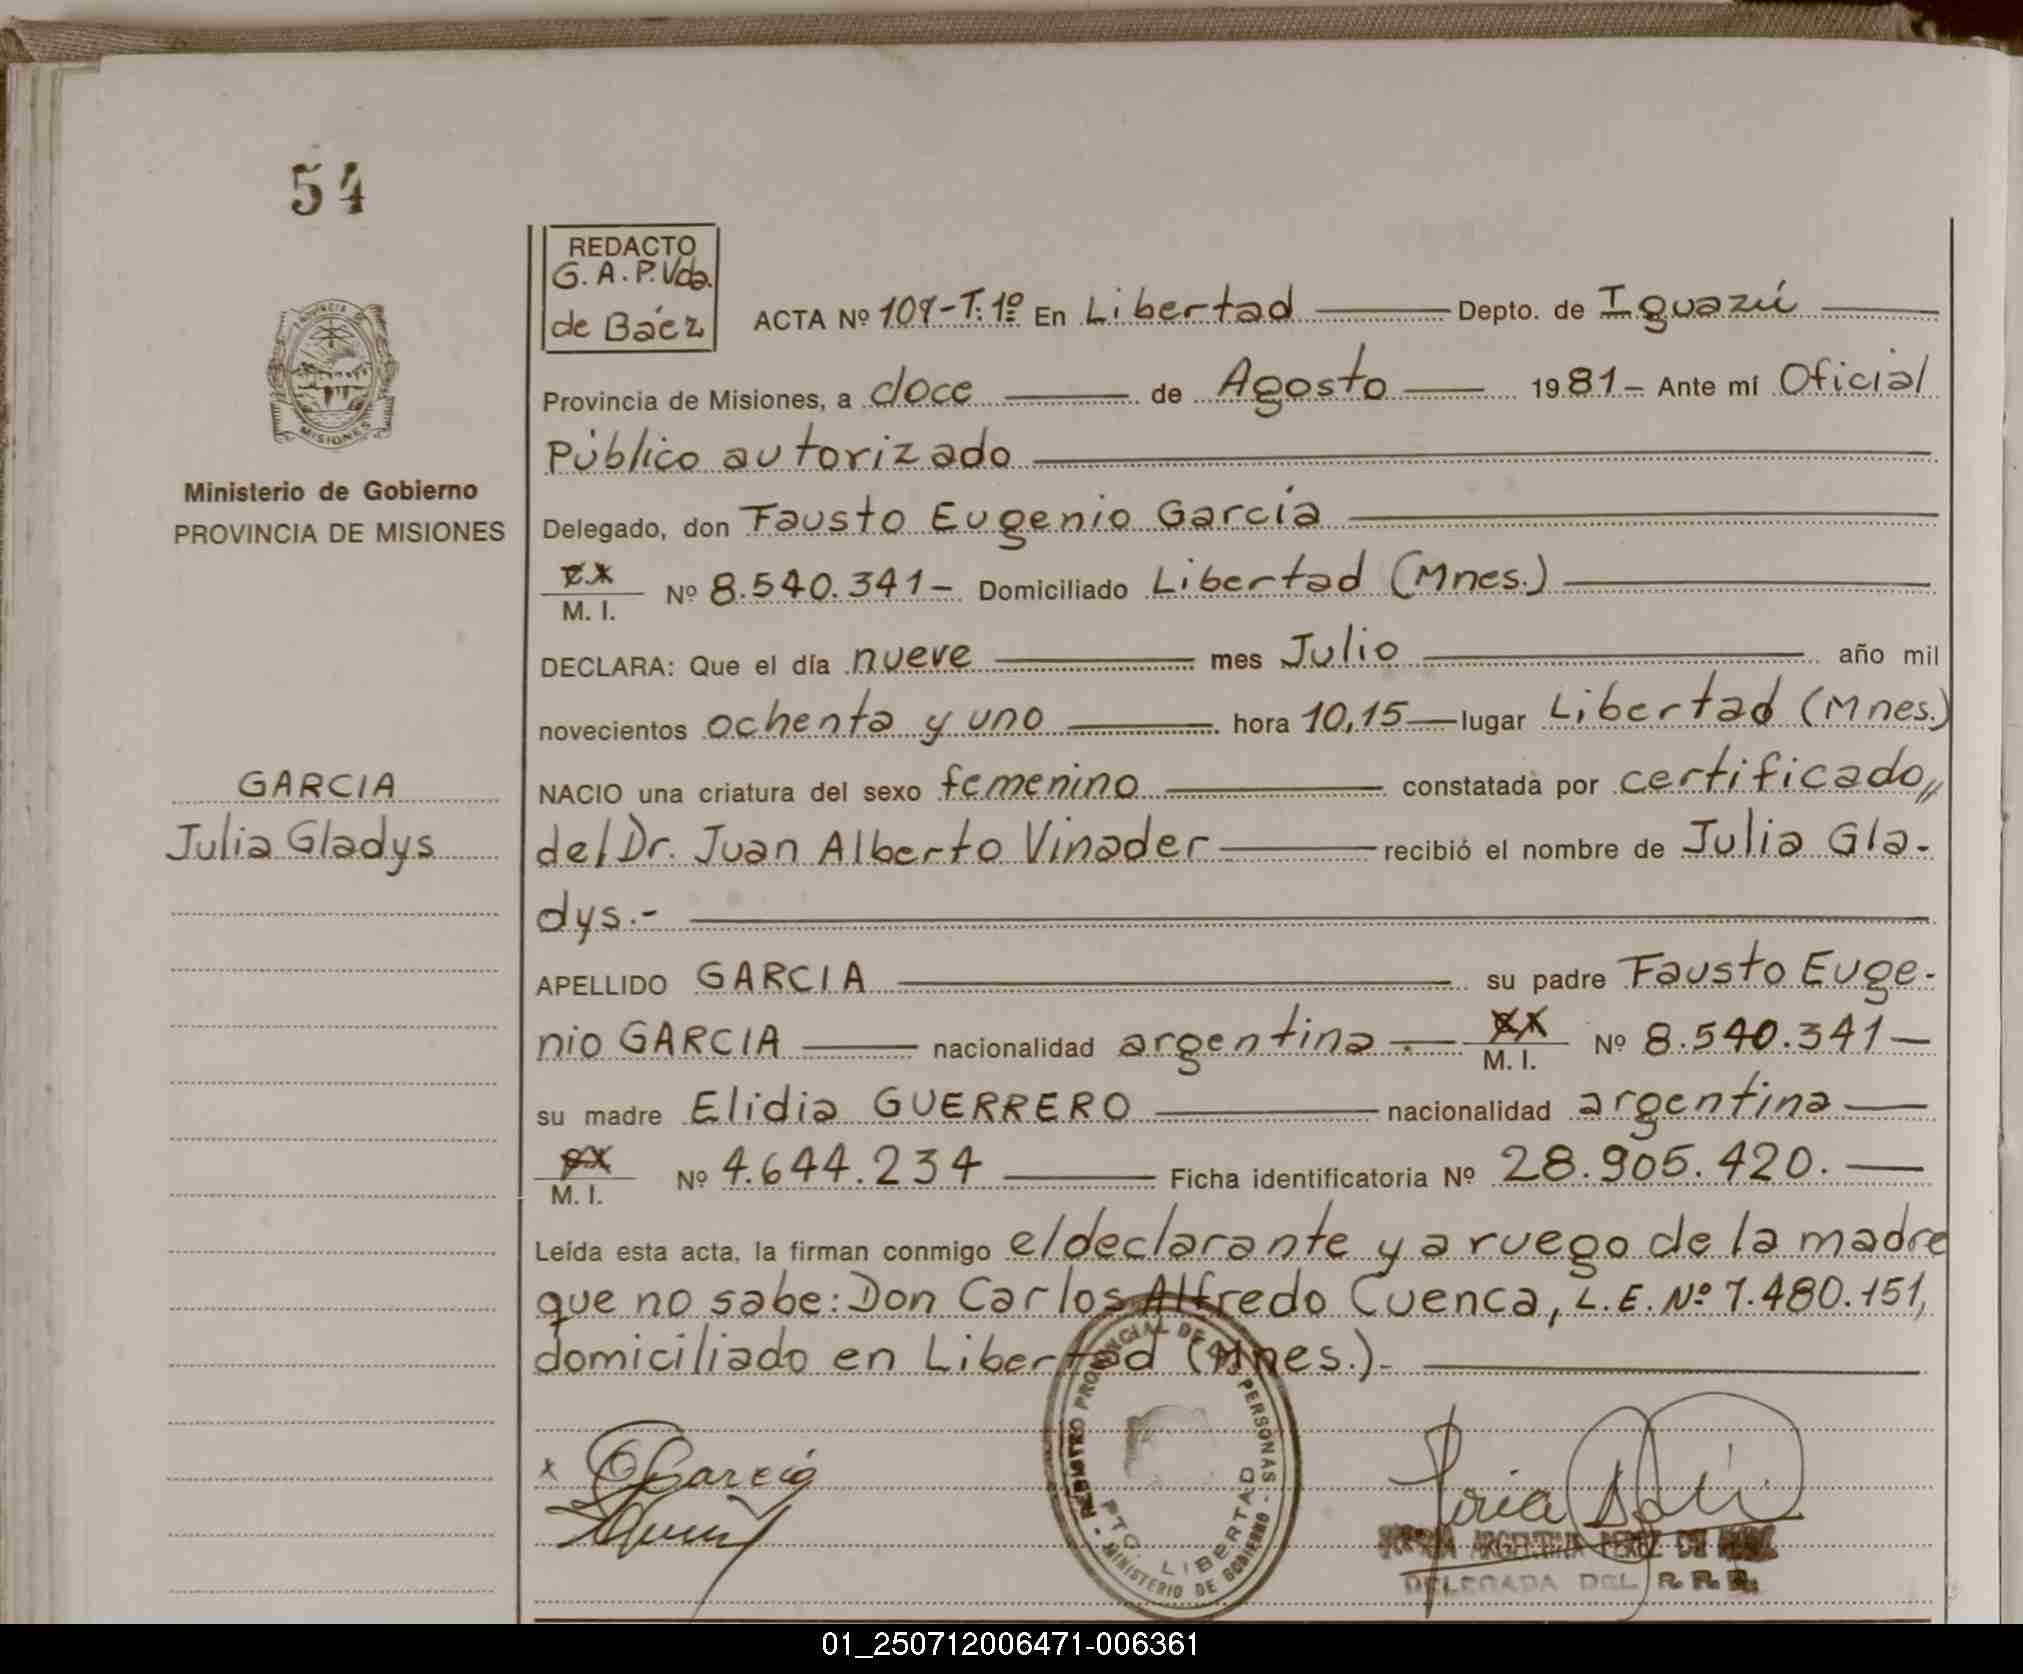 54
REDACTO
G. A. P. Vda.
de Báez
ACTA Nº 107-T:1º En Libertad Depto. de Iguazú
Provincia de Misiones, a doce de Agosto 1981- Ante mí Oficial
Público autorizado
Ministerio de Gobierno
PROVINCIA DE MISIONES
Delegado, don Fausto Eugenio García
M. I. Nº 8.540.341- Domiciliado Libertad (Mnes.)
DECLARA: Que el día nueve mes Julio año mil
novecientos ochenta y uno hora 10,15 lugar Libertad (Mnes.)
GARCIA
Julia Gladys
NACIO una criatura del sexo femenino constatada por certificado,,
del Dr. Juan Alberto Vinader recibió el nombre de Julia Gla-
dys.-
APELLIDO GARCIA su padre Fausto Euge-
nio GARCIA nacionalidad argentina M. I. Nº 8.540.341-
su madre Elidia GUERRERO nacionalidad argentina
M. I. Nº 4.644.234 Ficha identificatoria Nº 28.905.420.
Leída esta acta, la firman conmigo el declarante y a ruego de la madre
que no sabe: Don Carlos Alfredo Cuenca, L.E. Nº 7.480.151,
domiciliado en Libertad (Mnes.)-
REGISTRO PROVINCIAL DE LAS PERSONAS
PTO. LIBERTAD
MINISTERIO DE GOBIERNO
x García
ARGENTINA PEREZ DE
DELEGADA DEL R. P. P.
MISIONES
01_250712006471-006361